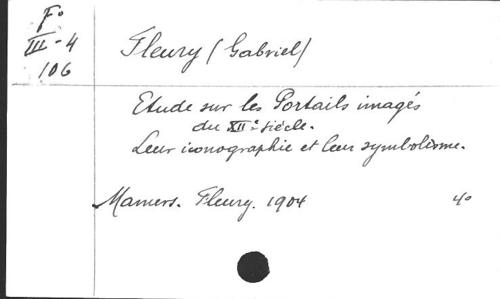 Fo
III-4
106
Fleury (Gabriel)
Etude sur les Portails imagés
du XIIe siècle.
Leur iconographie et leur symbolisme.
Mamers. Fleury. 1904 4o